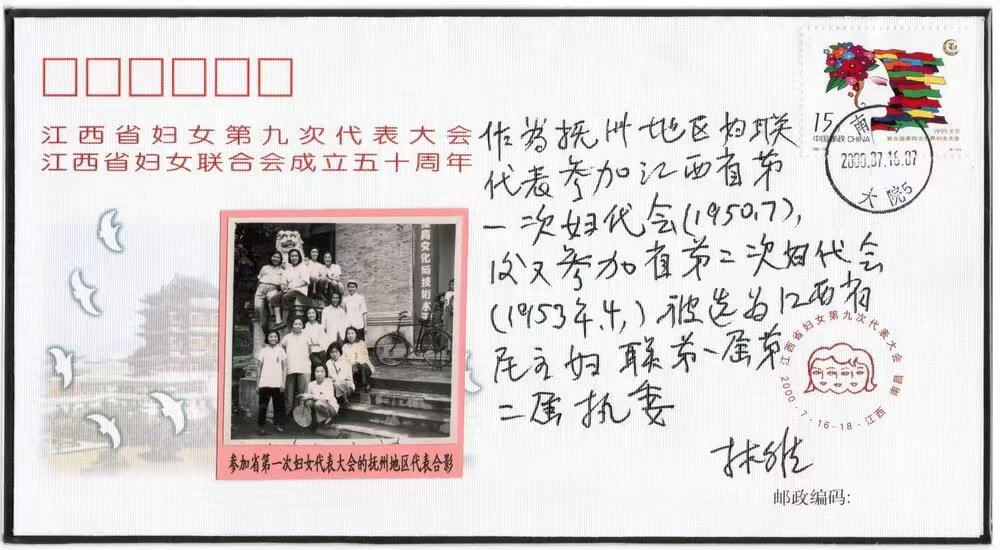 江西省妇女第九次代表大会
江西省妇女联合会成立五十周年
作为抚州地区妇联
代表参加江西省第
一次妇代会(1950.7),
后又参加省第二次妇代会
(1953年.4.)被选为江西省
民主妇联第一届第
二届执委
林维
参加省第一次妇女代表大会的抚州地区代表合影
15
中国邮政 CHINA
1995·北京
联合国第四次世界妇女大会
南
2000.07.16.07
大院5
江西省妇女第九次代表大会
2000.7.16-18·江西 南昌
邮政编码: